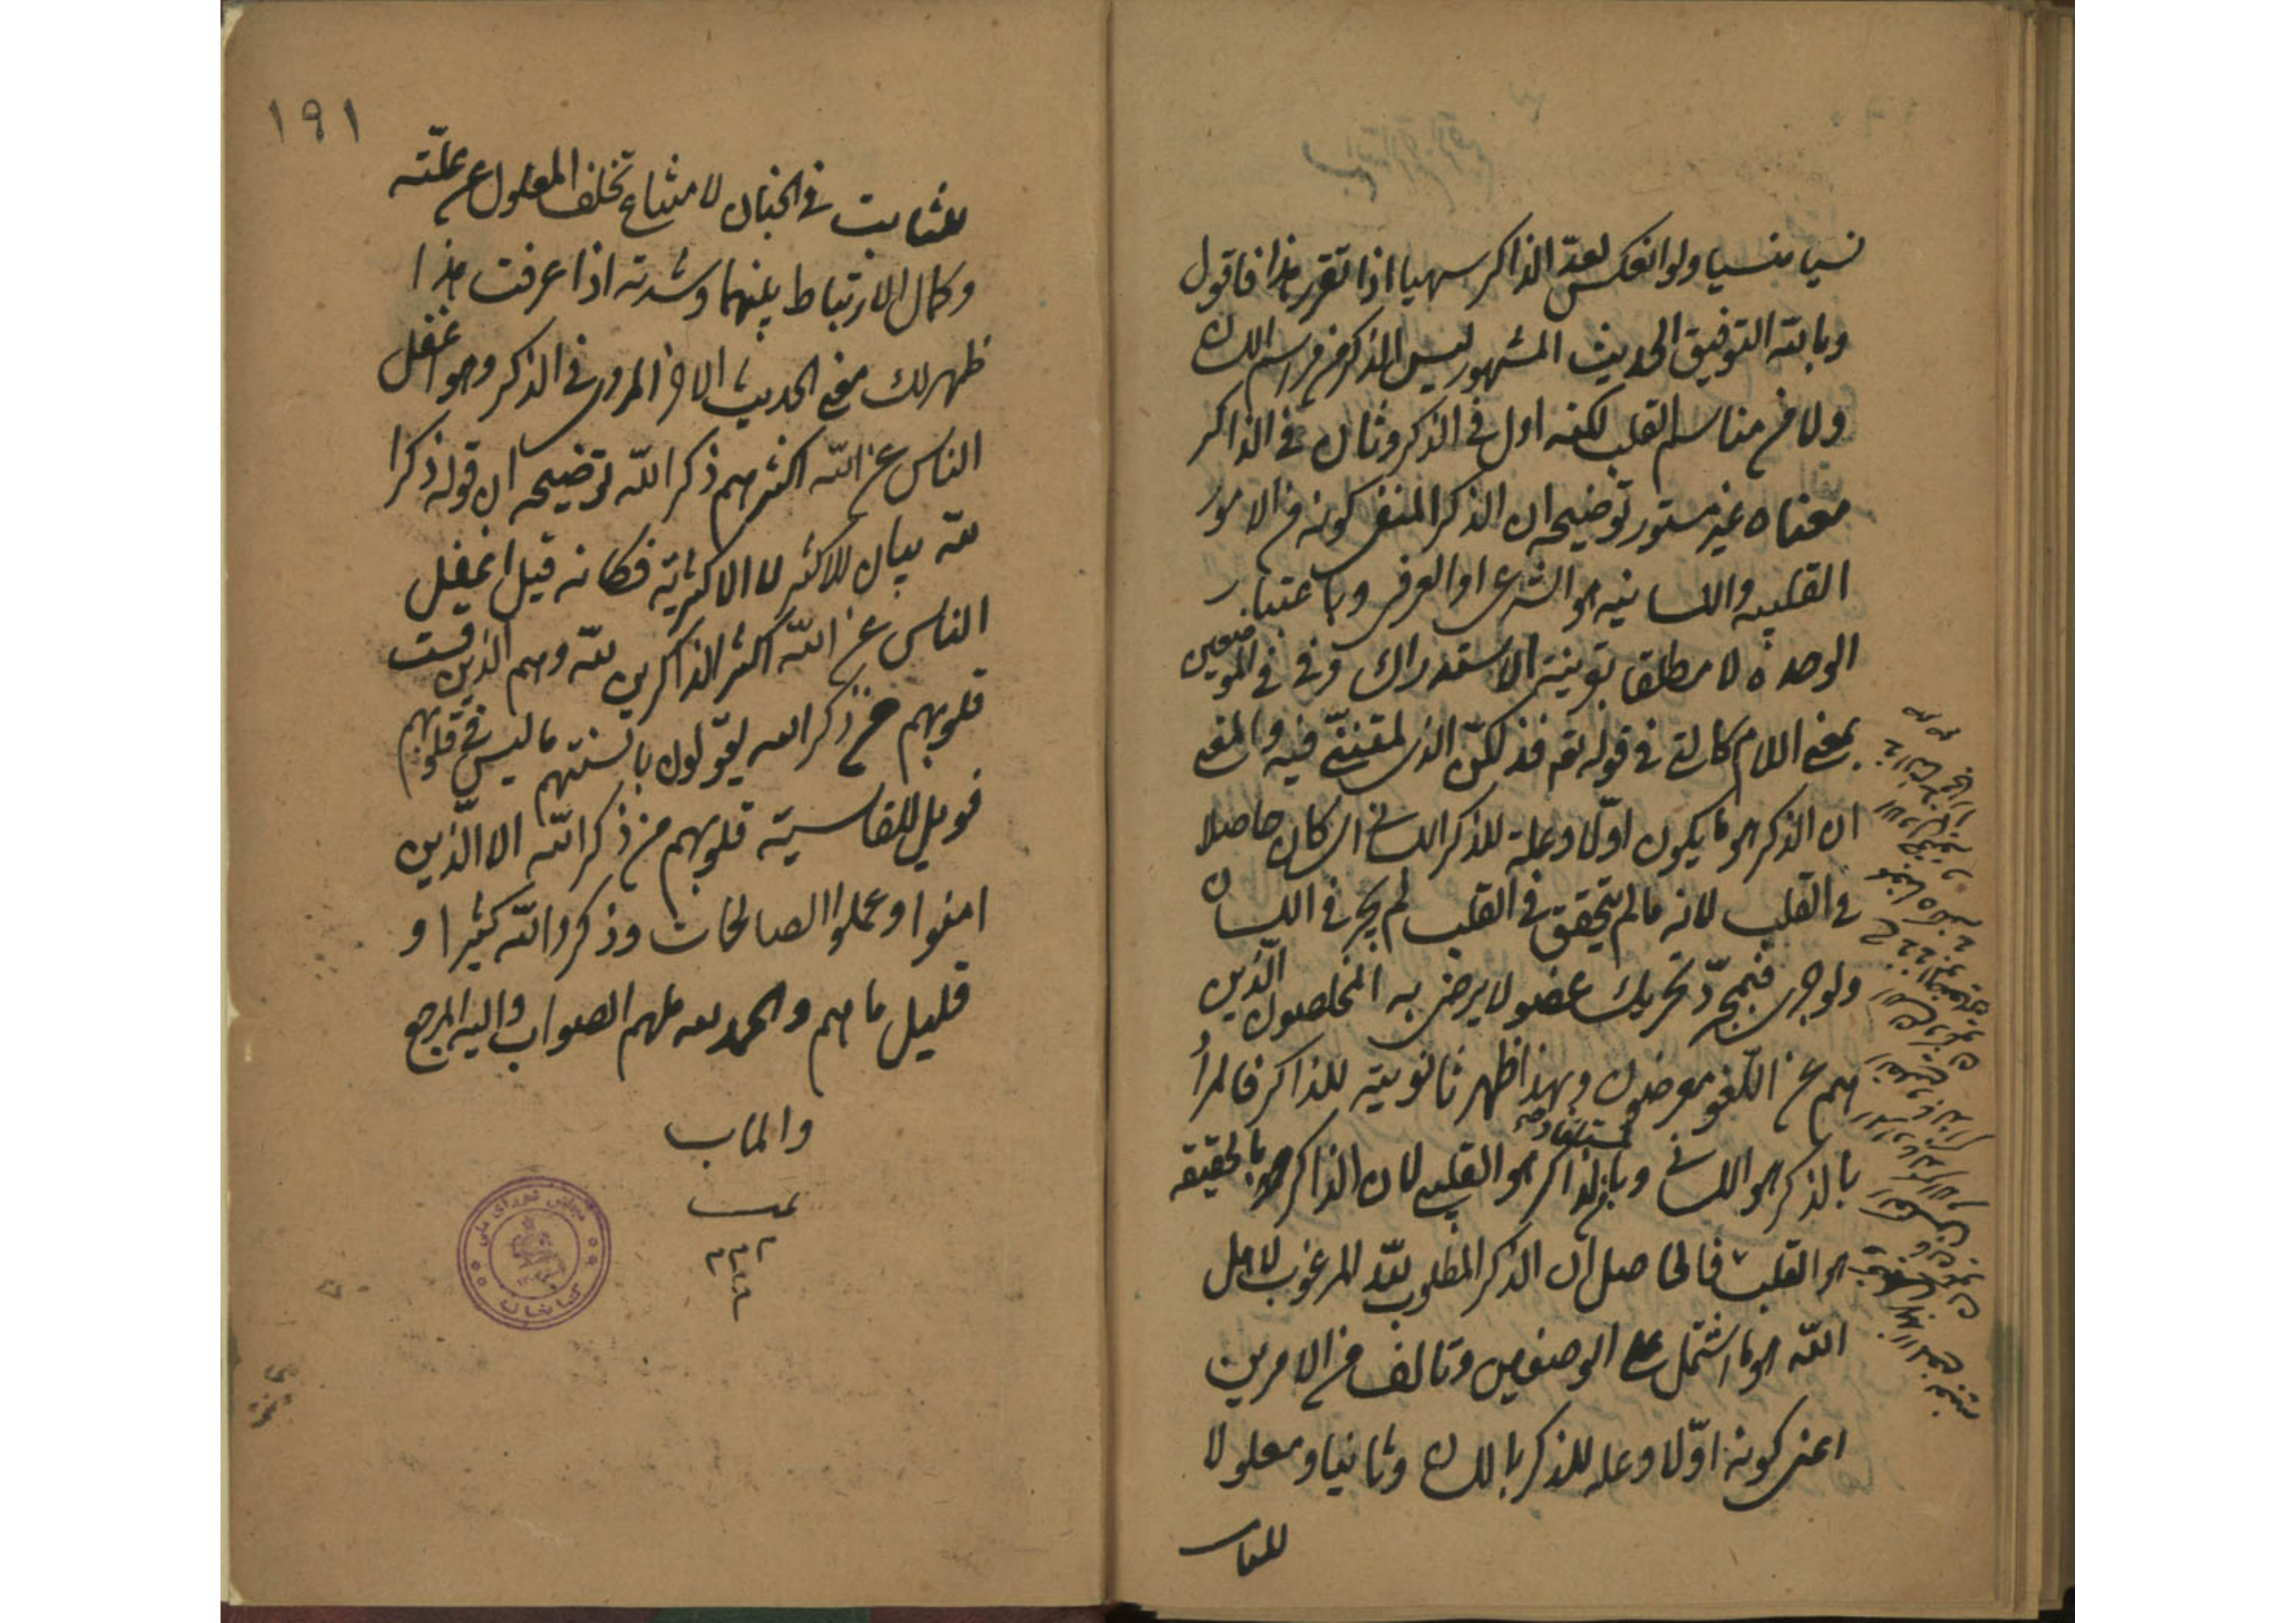 نسيا منسيا ولو انعكس لعدّ الذاكر سهيا اذا تقرر هذا فاقول
وبالله التوفيق الحديث المشهور ليس الذكر من مراسم اللسان
ولا من مناسم القلب لكنه اول في الذكر وثان في الذاكر
معناه غير مستور توضيحه ان الذكر المنفى كونه من الامور
القلبيه واللسانيه هو الشرعى او العرفى وباعتبار
الوحدة لا مطلقا بقرينة الاستدراك وفى في الموضعين
بمعنى اللام كالتى في قوله تع فذلكنّ الذى لمتننّى فيه والمعنى
ان الذكر هو ما يكون اوّلا وعلة للذكر اللسانى اى كان حاصلا
في القلب لانه مالم يتحقق في القلب لم يجر في اللسان
ولو جرى فبمجرّد تحريك عضو لا يرضى به المخلصون الّذين
هم عن اللّغو معرضون وبهذا ظهر ثانويته للذاكر فالمراد
بالذكر هو اللسانى وبالذاكر هو القلب لان الذاكر بالحقيقه
هو القلب فالحاصل ان الذكر المطلوب للّه المرغوب لاهل
اللّه هو ما اشتمل على الوصفين وتالف من الامرين
اعنى كونه اوّلا وعله للذكر باللسان وثانيا ومعلولا
للثابت
١٩١
للثابت في الجنان لامتناع تخلف المعلول عن علّته
وكمال الارتباط بينهما وشدته اذا عرفت هذا
ظهر لك معنى الحديث الاخر المروى في الذكر وهو اغفل
الناس عن اللّه اكثرهم ذكر اللّه توضيحه ان قوله ذكرا
للّه بيان للاكثر لا الاكثريّة فكانه قيل اغفل
الناس عن اللّه اكثر الذاكرين للّه وهم الذين قست
قلوبهم من ذكر الله يقولون بالسنتهم ما ليس في قلوبهم
فويل للقاسية قلوبهم من ذكر اللّه الا الّذين
امنوا وعملوا الصالحات وذكروا اللّه كثيرا و
قليل ما هم والحمد لله ملهم الصواب واليه المرجع
والماب
تمت
كتابخانه مجلس شوراى ملى